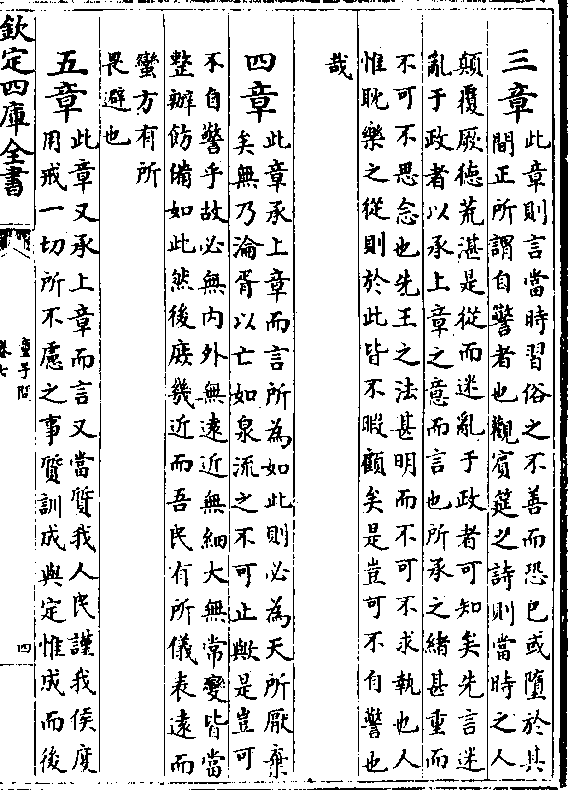 三章
此章則言當時習俗之不善而恐已或墮於其
間正所謂自警者也觀賓筵之詩則當時之人
顛覆厥徳荒湛是從而迷亂于政者可知矣先言迷
亂于政者以承上章之意而言也所承之緒甚重而
不可不思念也先王之法甚明而不可不求執也人
惟耽樂之從則於此皆不暇顧矣是豈可不自警也
哉
四章
此章承上章而言所為如此則必為天所厭棄
矣無乃淪胥以亡如泉流之不可止歟是豈可
不自警乎故必無内外無逺近無細大無常變皆當
整辦飭備如此然後庻幾近而吾民有所儀表逺而
蠻方有所
畏避也
五章
此章又承上章而言又當質我人民謹我侯度
用戒一切所不慮之事質訓成與定惟成而後
欽定四庫全書
童子問
卷七
四